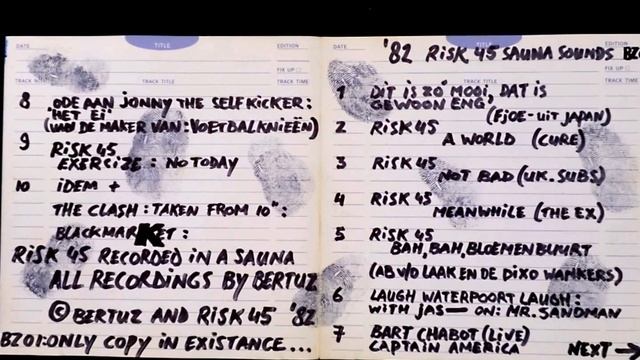 DATE TITLE EDITION
FIX UP
TRACK TITLE TRACK TIME
8 ODE AAN JONNY THE SELFKICKER:
"HET EI"
(VAN DE MAKER VAN: VOETBALKNIEËN)
9 RiSK 45
EXERCIZE: NO TODAY
10 iDEM +
THE CLASH: TAKEN FROM 10":
BLACKMARKET:
RiSK 45 RECORDED IN A SAUNA
ALL RECORDINGS BY BERTUZ
© BERTUZ AND RiSK 45 '82
BZ01: ONLY COPY IN EXISTANCE...
DATE TITLE EDITION
'82 RiSK 45 SAUNA SOUNDS
FIX UP
TRACK TITLE TRACK TIME
1 DiT iS ZO' MOOi, DAT iS
GEWOON ENG'
(FJOE-UiT JAPAN)
2 RiSK 45
A WORLD (CURE)
3 RiSK 45
NOT BAD (UK. SUBS)
4 RiSK 45
MEANWHILE (THE EX)
5 RiSK 45
BAH, BAH, BLOEMENBUURT
(AB V/D LAAK EN DE DIXO WANKERS)
6 LAUGH WATERPOORT LAUGH:
WITH JAS— ON: MR. SANDMAN
7 BART CHABOT (LiVE)
CAPTAIN AMERICA
NEXT →